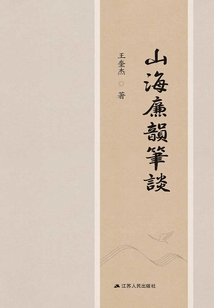 山海廉韻筆談
王奎杰 著
江苏人民出版社